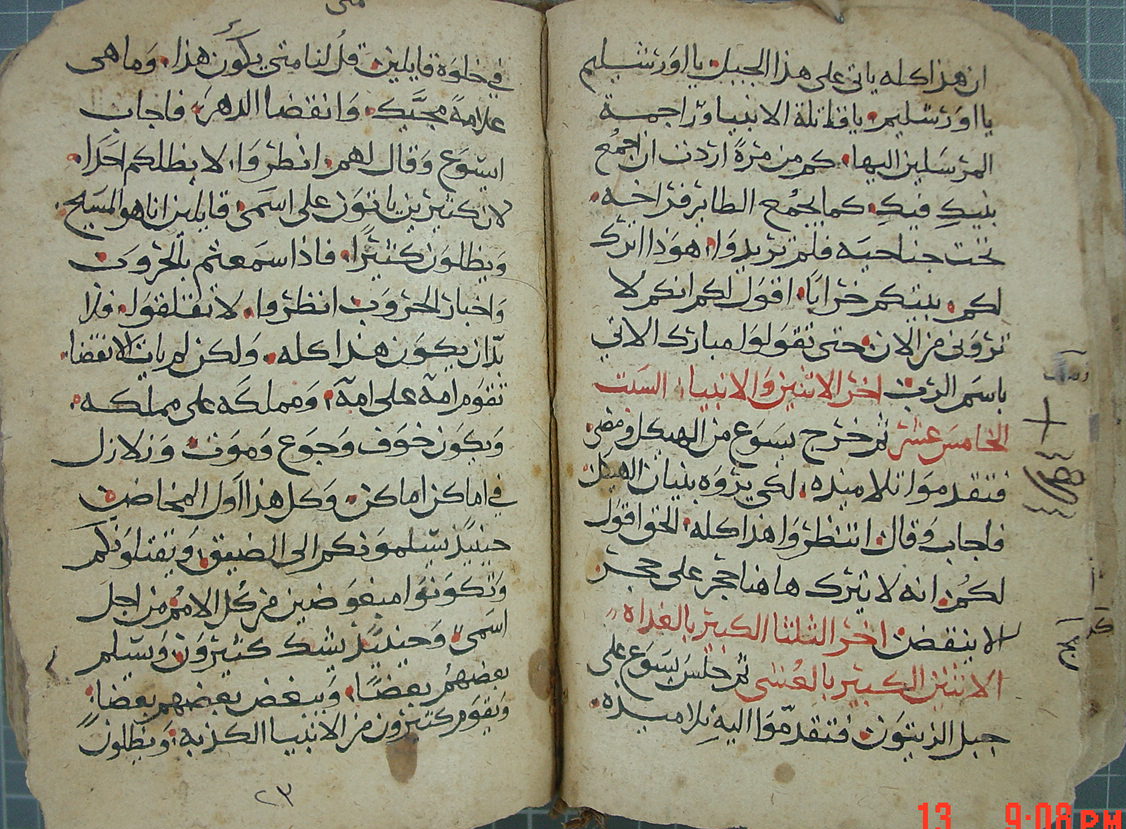 ان هذا كله ياتي على هذا الجيل يا اورشليم
يا اورشليم يا قاتلة الانبيا وراجمة
المرسلين اليها كم من مرة اردت ان اجمع
بنيك فيك كما يجمع الطاير فراخه
تحت جناحيه فلم تريدوا هوذا اترك
لكم بيتكم خرابا اقول لكم انكم لا
تروني من الان حتى تقولوا مبارك الاتي
باسم الرب اخر الاثنين والانبيا السبت
الخامس عشر ثم خرج يسوع من الهيكل ومضى
فتقدموا تلاميذه لكي يروه بنيان الهيكل
فاجاب وقال انتظروا هذا كله الحق اقول
لكم انه لا يترك هاهنا حجر على حجر
الا ينقض اخر الثلثا الكبير بالغداه
الاثنين الكبير بالعشي ثم جلس يسوع على
جبل الزيتون فتقدموا اليه تلاميذه
متى
في خلوة قايلين قل لنا متى يكون هذا وما هي
علامة مجيك وانقضا الدهر فاجاب
ايسوع وقال لهم انظروا لا يظلكم احدا
لان كثيرين ياتون على اسمي قايلين انا هو المسيح
ويظلون كثيرا فاذا سمعتم بالحروب
واخبار الحروب انظروا لا تقلقوا فلا
بد ان يكون هذا كله ولكن لم يات الانقضا
تقوم امة على امة ومملكه على مملكه
ويكون خوف وجوع وموت وزلازل
في اماكن اماكن وكل هذا اول المخاض
حينيذ يسلمونكم الى الضيق ويقتلونكم
وتكونوا مبغوضين من كل الامم من اجل
اسمي وحينيذ يشك كثيرون ويسلم
بعضهم بعضا ويبغض بعضهم بعضا
ويقوم كثيرون من الانبيا الكذبه ويظلون
٢٣
13 9:08 PM